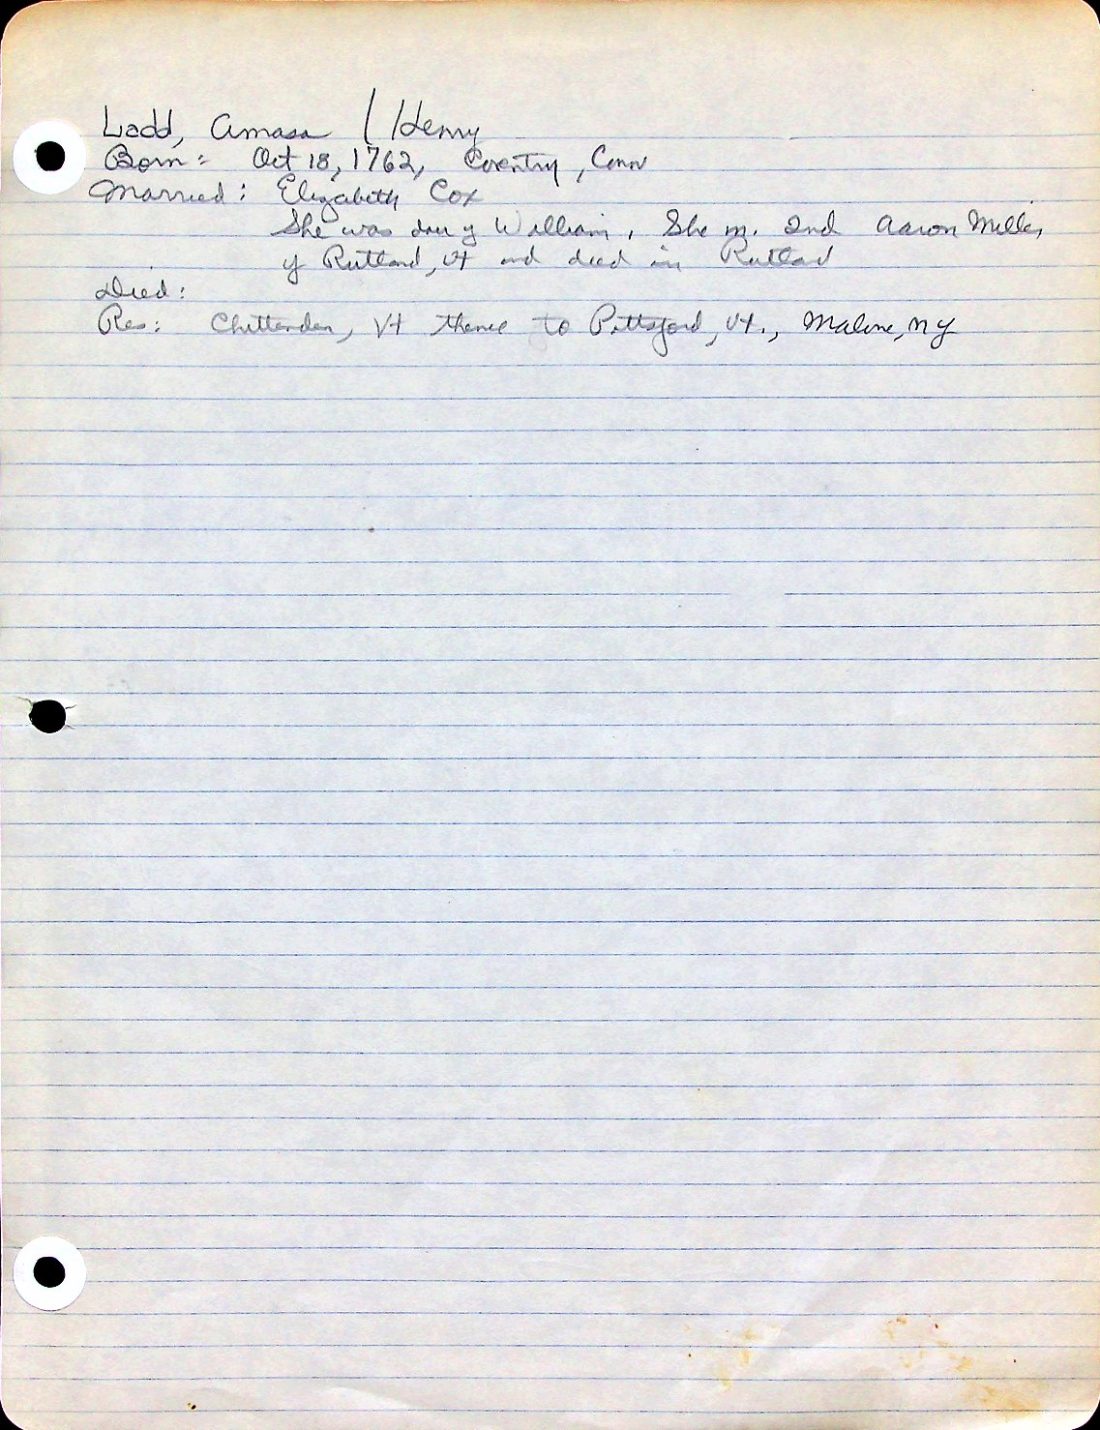 Ladd, Amasa / Henry
Born: Oct 18, 1762, Coventry, Conn
Married: Elizabeth Cox
She was dau of William. She m. 2nd Aaron Miller,
of Rutland, Vt and died in Rutland
Died:
Res: Chittenden, Vt thence to Pittsford, Vt., Malone, NY